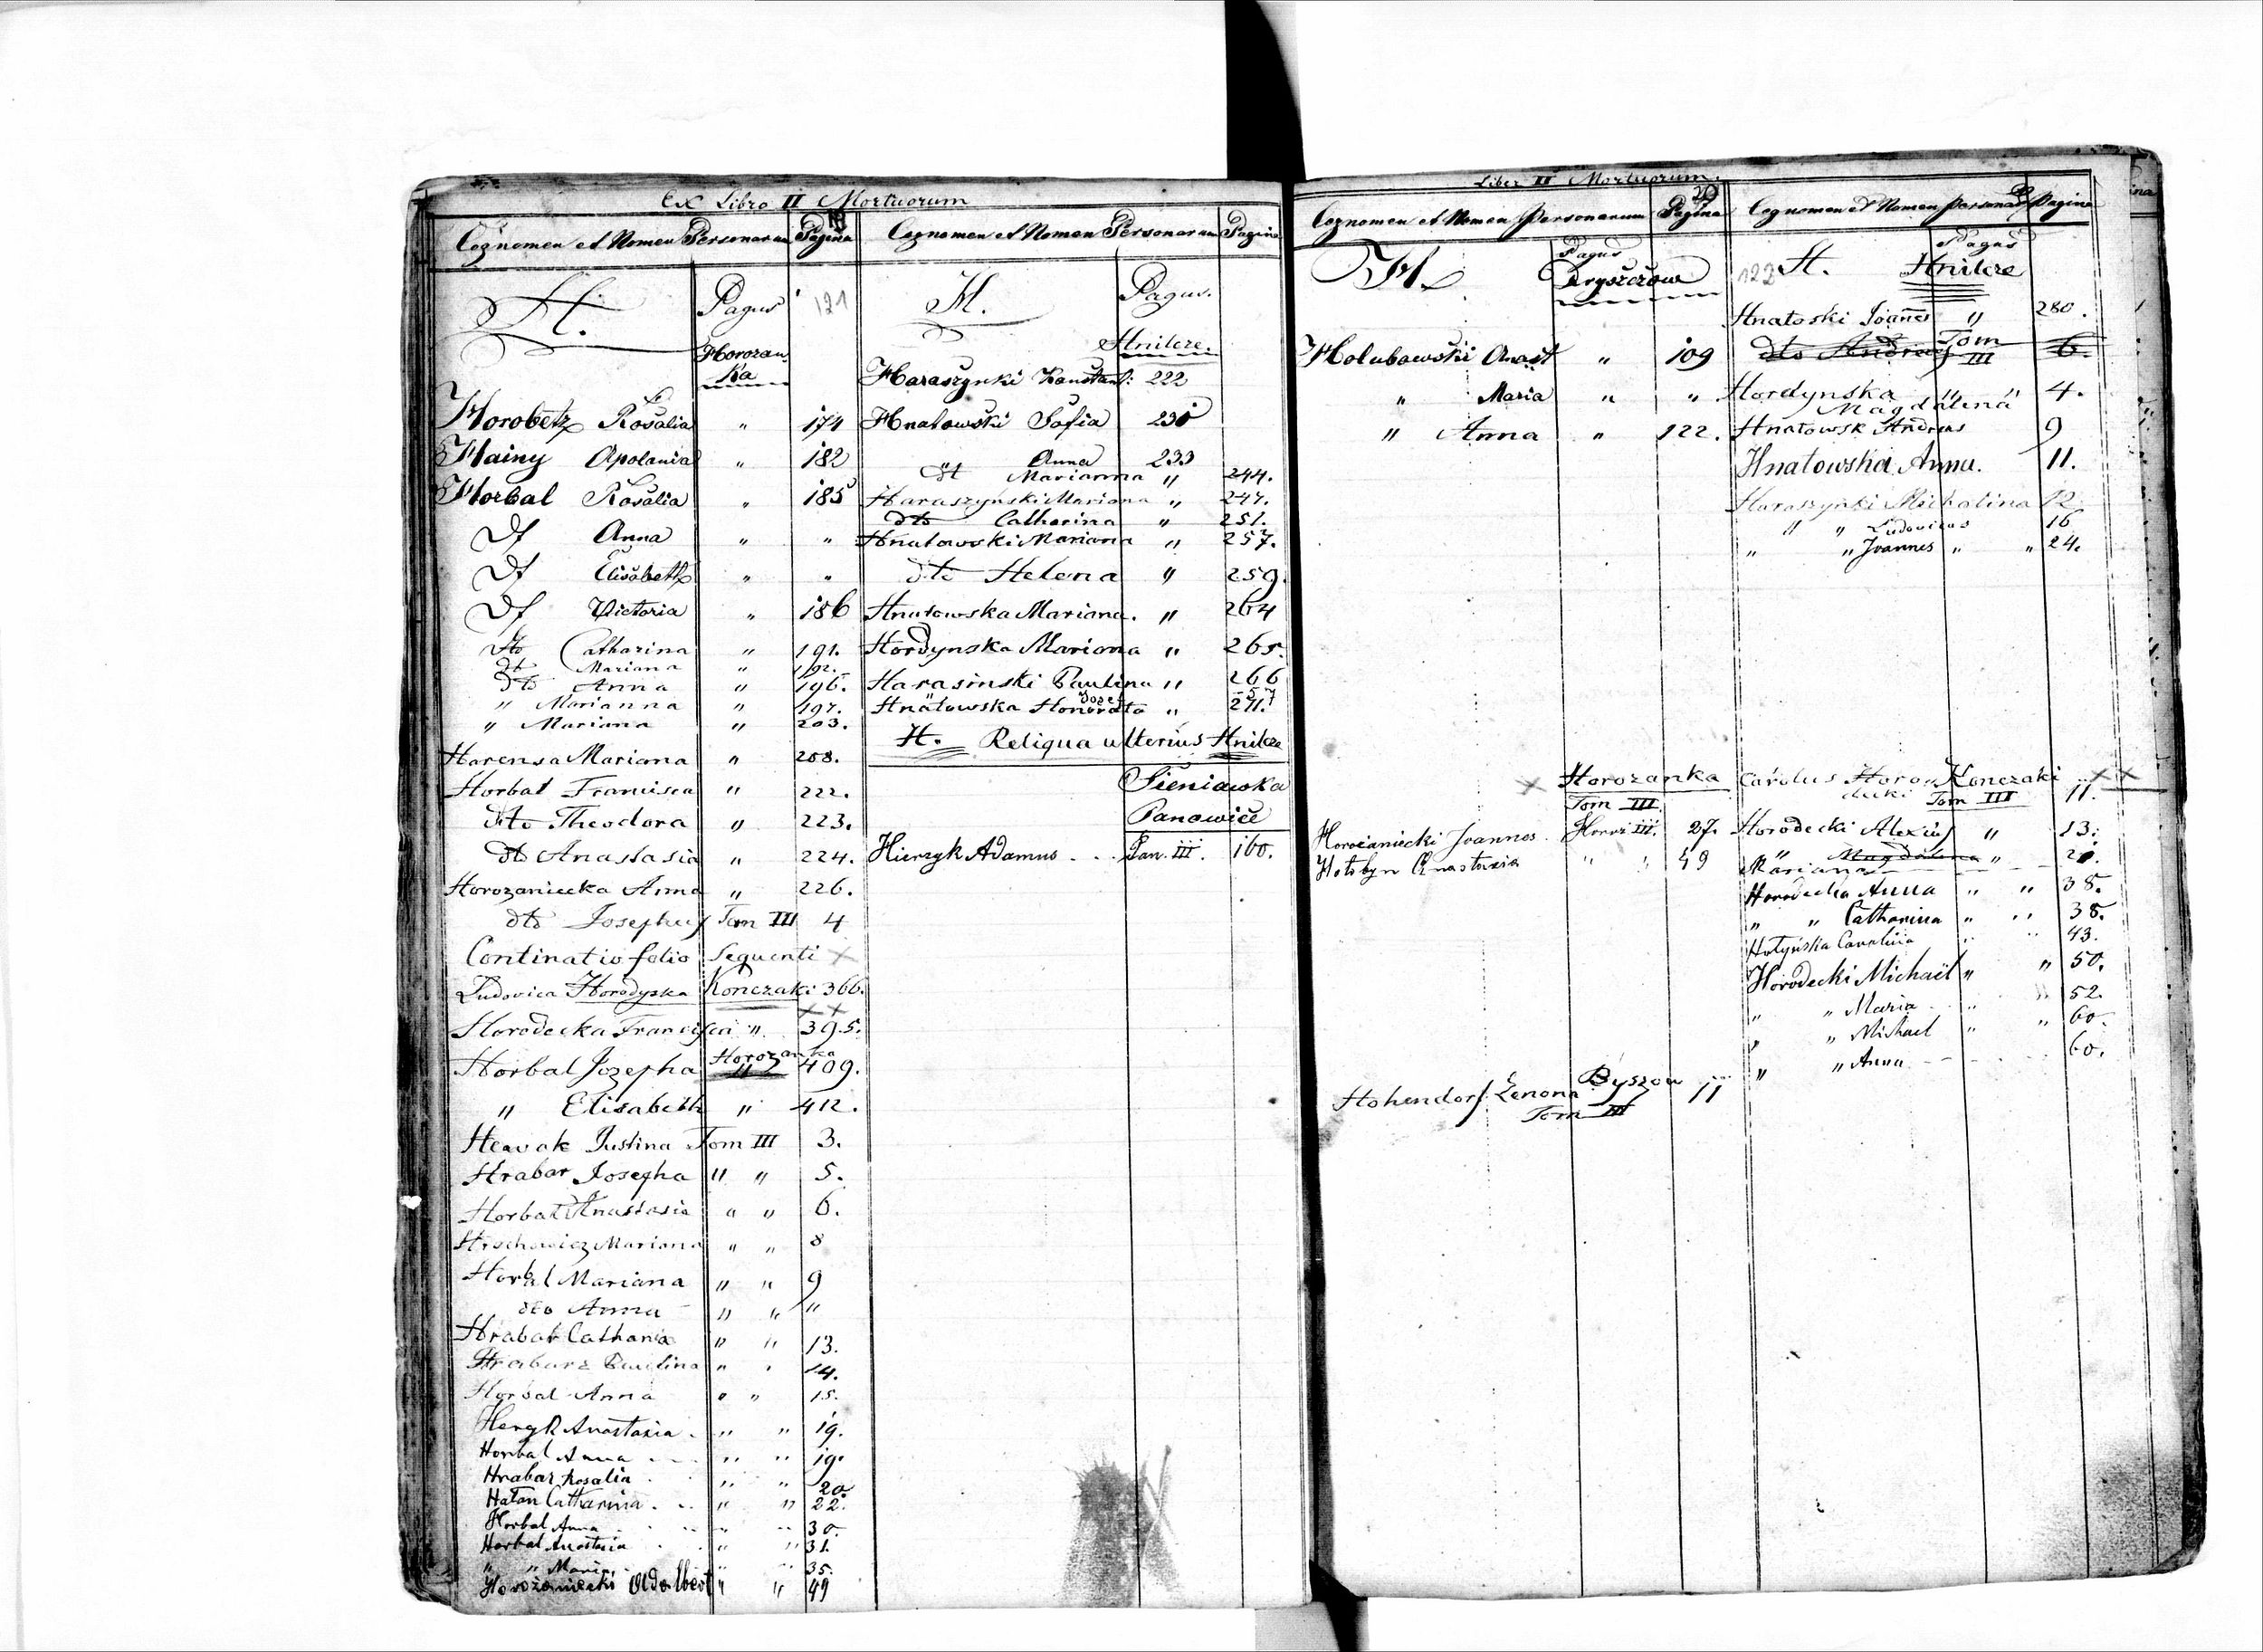 Ex Libro II Mortuorum
Cognomen et Nomen Personarum Pagina
H. Pagus 121
Horozanka
Horobetz Rosalia " 174
Hainy Apolania " 182
Horbal Rosalia " 185
Dt Anna " "
Dt Elisabeth " "
Dt Victoria " 186
dto Catharina " 191.
dto Mariana " 192.
dto Anna " 196.
" Marianna " 197.
" Mariana " 203.
Harensa Mariana " 208.
Horbal Francisca " 222.
dto Theodora " 223.
dto Anastasia " 224.
Horozaniecka Anna " 226.
dto Josephus Tom III 4
Continatio folio Sequenti X
Ludovica Horodyska Konczaki 366.
X X
Horodecka Francisca " 395.
Horbal Jozepha Horozanka " 409.
" Elisabeth " 412.
Justina Tom III 3.
Hrabar Josepha " " 5.
Horbal Anastasia " " 6.
Mariana " " 8
Horbal Mariana " " 9
dto Anna " " "
Hrabar " " 13.
Paulina " " 14.
Horbal Anna " " 15.
Anastasia . " " 19.
Horbal Anna " " 19.
Hrabar Rosalia " " 20
Catharina " " 22.
Horbal Anna " " 30
Horbal Anastasia " " 31.
" " Maria " " 35.
Horozaniecki Adalbert " " 49
Cognomen et Nomen Personarum Pagina
H. Pagus.
Hnilcze.
Haraszynki Konstant: 222
Hnatowski Sofia 230
" Anna 233
dt Marianna " 244.
Haraszynski Mariana " 247.
dto Catharina " 251.
Hnatowski Mariana " 257.
dto Helena " 259.
Hnatowska Mariana. " 264
Hordynska Mariana " 265.
Harasinski Paulina " 266
Hnatowska Honorata " 271.
H. Reliqua ulterius Hnilcze
Sieniawka
Panowice
Hierzyk Adamus . . Pan. III. 160.
Liber II Mortuorum.
Cognomen et Nomen Personarum Pagina
H. Pagus
Dryszczow
Holubowski Anast " 109
" Maria " "
" Anna " 122.
X Horozanka
Tom III.
Horożaniecki Joannes . Horoż III. 27.
Anastasia " " 49
Hohendorf Zenona Byszow 11
Tom III
Cognomen et Nomen Personar Pagina
122 H. Pagus
Hnilcze
Hnatoski Joannes " 280.
dto Andreas Tom III 6.
Hordynska Magdalena " " 4.
Hnatowsk Andreas 9
Hnatowska Anna. 11.
Haraszynki Michalina 12
" " Ludovicus 16
" " Joannes " " 24.
Carolus Horodecki Konczaki X X
Tom III 11.
Horodecki Alexius " 13.
" Magdalena "
Mariana
Horodecka Anna " " 38.
" " Catharina " " 38.
Hołyńska Carolina " " 43.
Horodecki Michaël " " 50.
" " Maria " " 52.
" " Michael " " 60.
" " Anna 60.